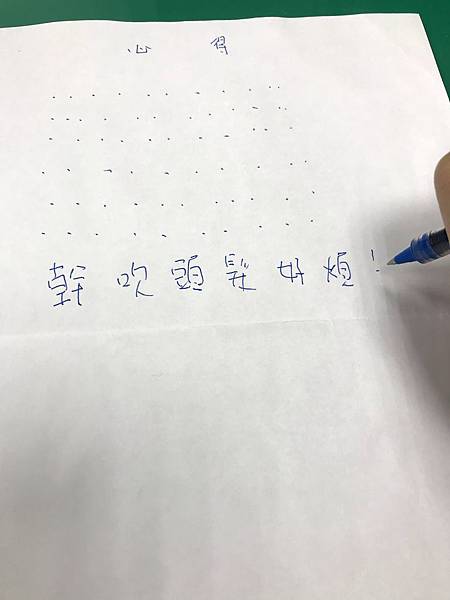 心得
幹吹頭髮好煩!